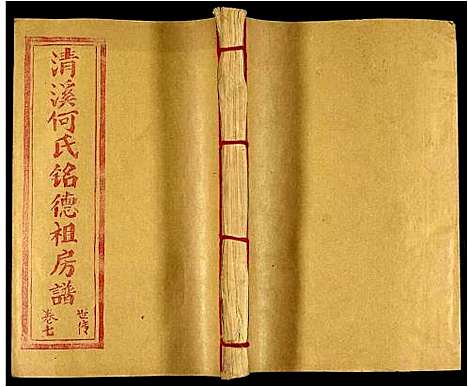 清溪何氏铭德祖房譜
世傳
卷七